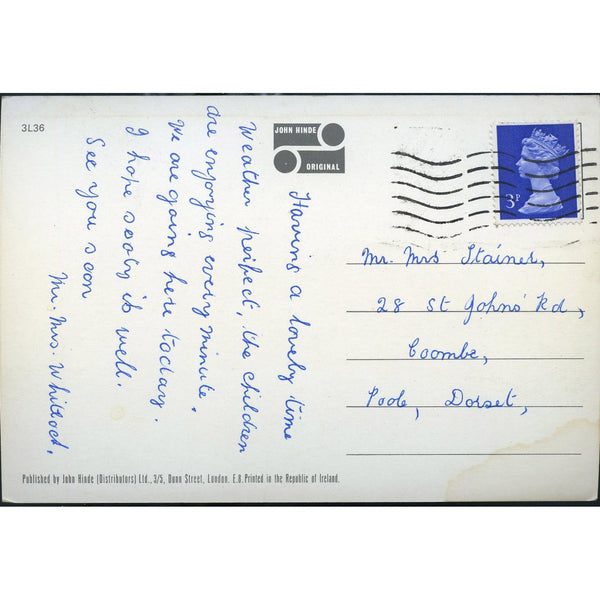 3L36
JOHN HINDE
ORIGINAL
3P
Having a lovely time
Weather perfect, the children
are enjoying every minute.
We are going here today.
I hope sooty is well.
See you soon
Mr. Mrs. Whitlock.
Mr. Mrs Stainer,
28 St Johns' Rd,
Coombe,
Poole, Dorset,
Published by John Hinde (Distributors) Ltd., 3/5, Dunn Street, London. E.8. Printed in the Republic of Ireland.